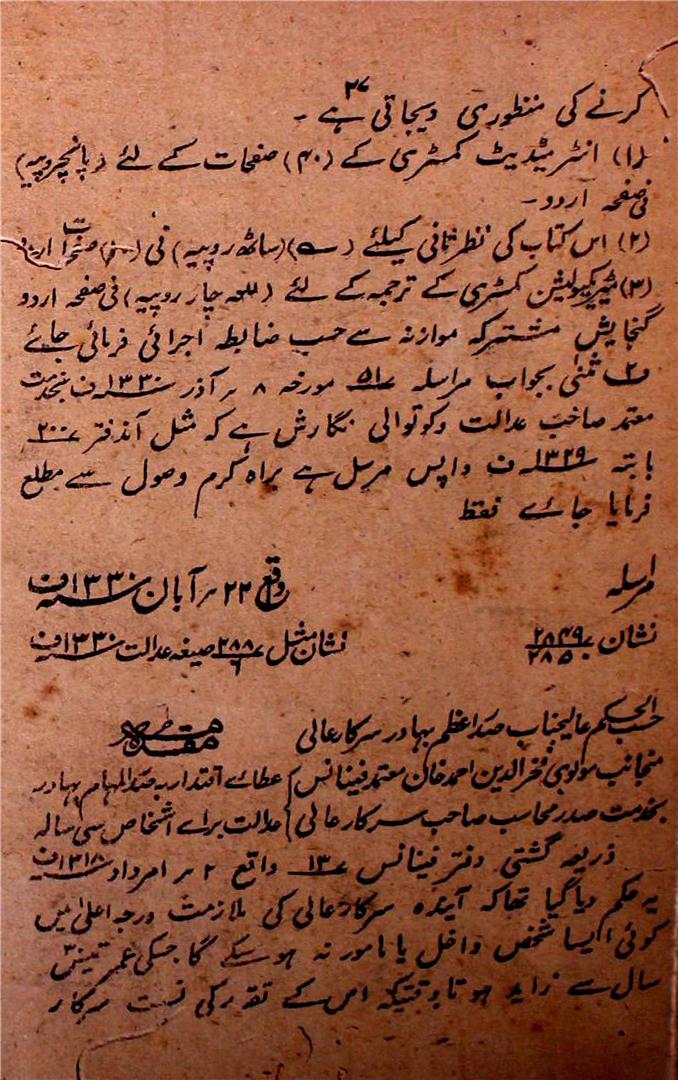 ۲۷
کرنے کی منظوری دیجاتی ہے ۔
(۱) انٹرمیڈیٹ کمسٹری کے (۴۰) صفحات کے لئے (پانچروپیہ)
فی صفحہ اردو ۔
(۲) اس کتاب کی نظرثانی کیلئے (ساٹھ روپیہ) فی صفحات
(۳) میٹریکیولیشن کمسٹری کے ترجمہ کے لئے (للعہ چار روپیہ) فی صفحہ اردو
گنجایش مشترکہ موازنہ سے حسب ضابطہ اجرائی فرمائی جائے
ف۲ مثنیٰ بجواب مراسلہ ۵۱ مورخہ ۸ ر آذر ۱۳۳۰ ف بخدمت
معتمد صاحب عدالت وکوتوالی نگارش ہے کہ مثل آندفتر ۲۰۰
بابتہ ۱۳۲۹ ف واپس مرسل ہے براہ کرم وصول سے مطلع
فرمایا جاے فقط
مراسلہ واقع ۲۲ ر آبان ۱۳۳۰ ف
نشان ۲۸۴۹/۲۸۵۰ نشان مثل ۲۸۸/۱ صیغہ عدالت ۱۳۳۰ ف
حسب الحکم عالیجناب صدر اعظم بہادر سرکارعالی مقدمہ
منجانب مولوی فخرالدین احمد خان معتمد فینانس عطاے اقتدار بہ صدرالمہام بہادر
بخدمت صدر محاسب صاحب سرکارعالی عدالت براے اشخاص سی سالہ
ذریعہ گشتی دفتر فینانس ۱۳ واقع ۲ ر امرداد ۱۳۱۸ ف
یہ حکم دیا گیا تھا کہ آیندہ سرکارعالی کی ملازمت درجہ اعلیٰ میں
کوئی ایسا شخص داخل یا مامور نہ ہوسکے گا جسکی عمر تیس
سال سے زاید ہو تاوقتیکہ اس کے تقرر کی نسبت سرکار